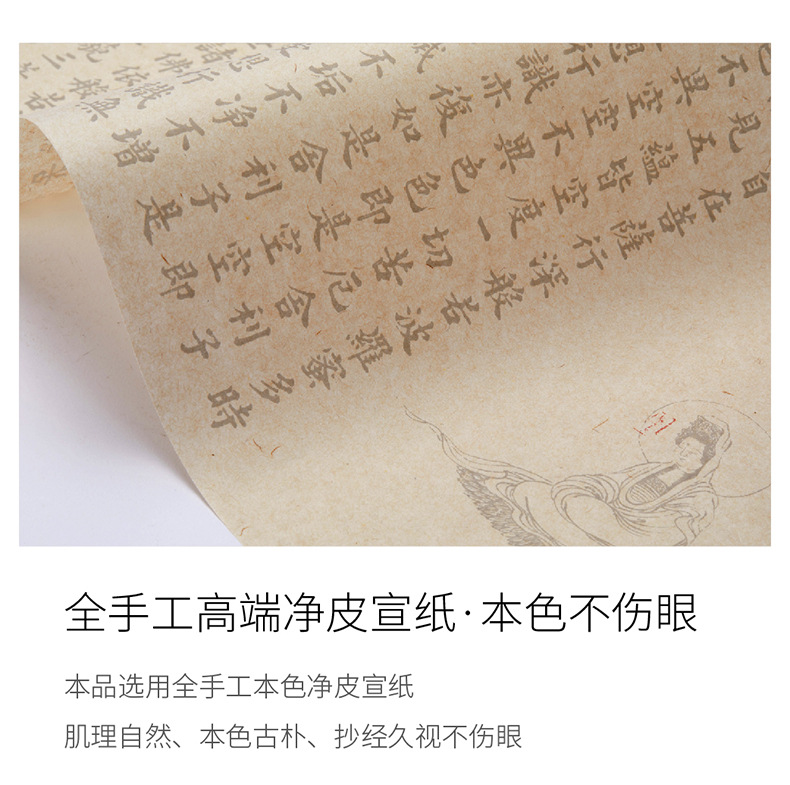 自在菩薩行深般若波羅蜜多時
見五蘊皆空度一切苦厄舍利子
色不異空空不異色色即是空空即
想行識亦復如是舍利子是
滅不垢不净不增
全手工高端净皮宣纸·本色不伤眼
本品选用全手工本色净皮宣纸
肌理自然、本色古朴、抄经久视不伤眼